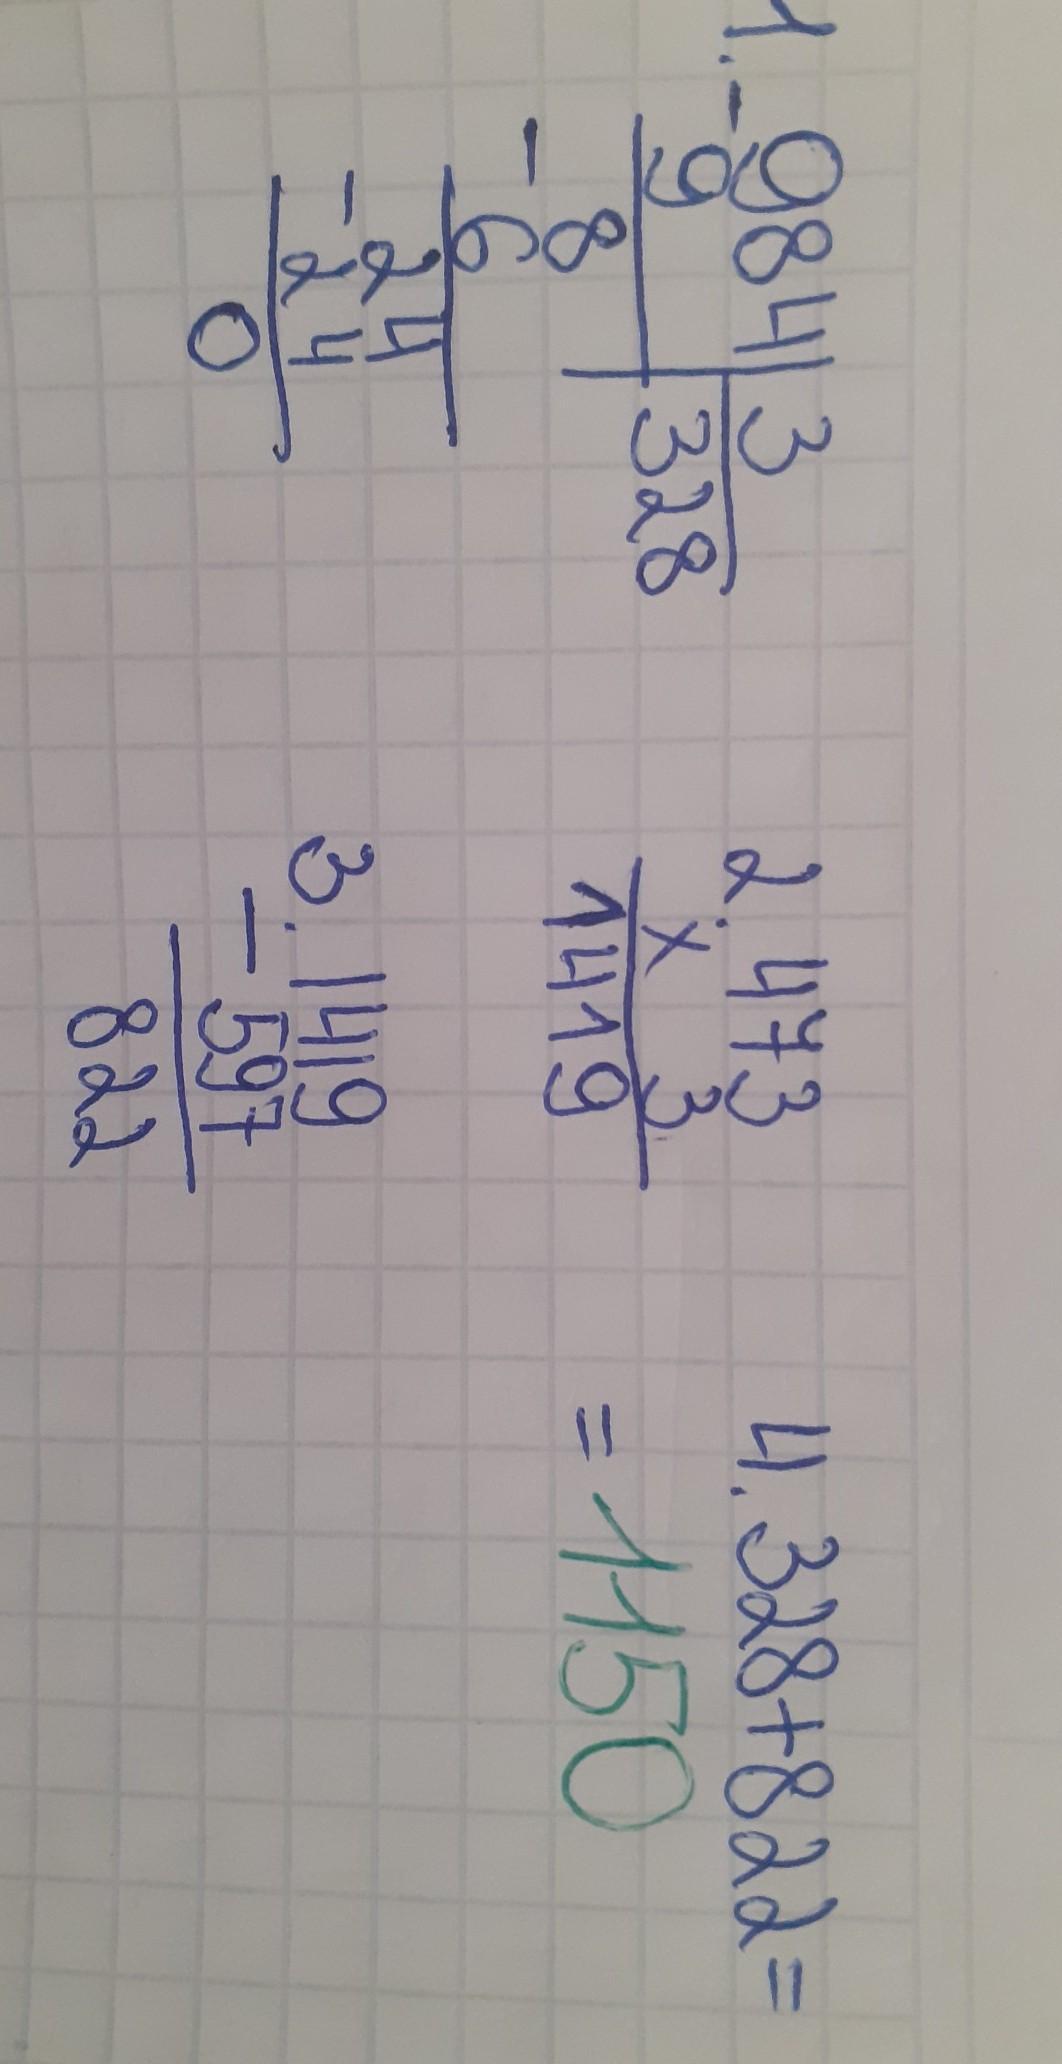 1. - 984 | 3
9 | 328
- 8
6
24
- 24
0
2. 473
x 3
1419
3. 1419
- 597
822
4. 328+822=
= 1150